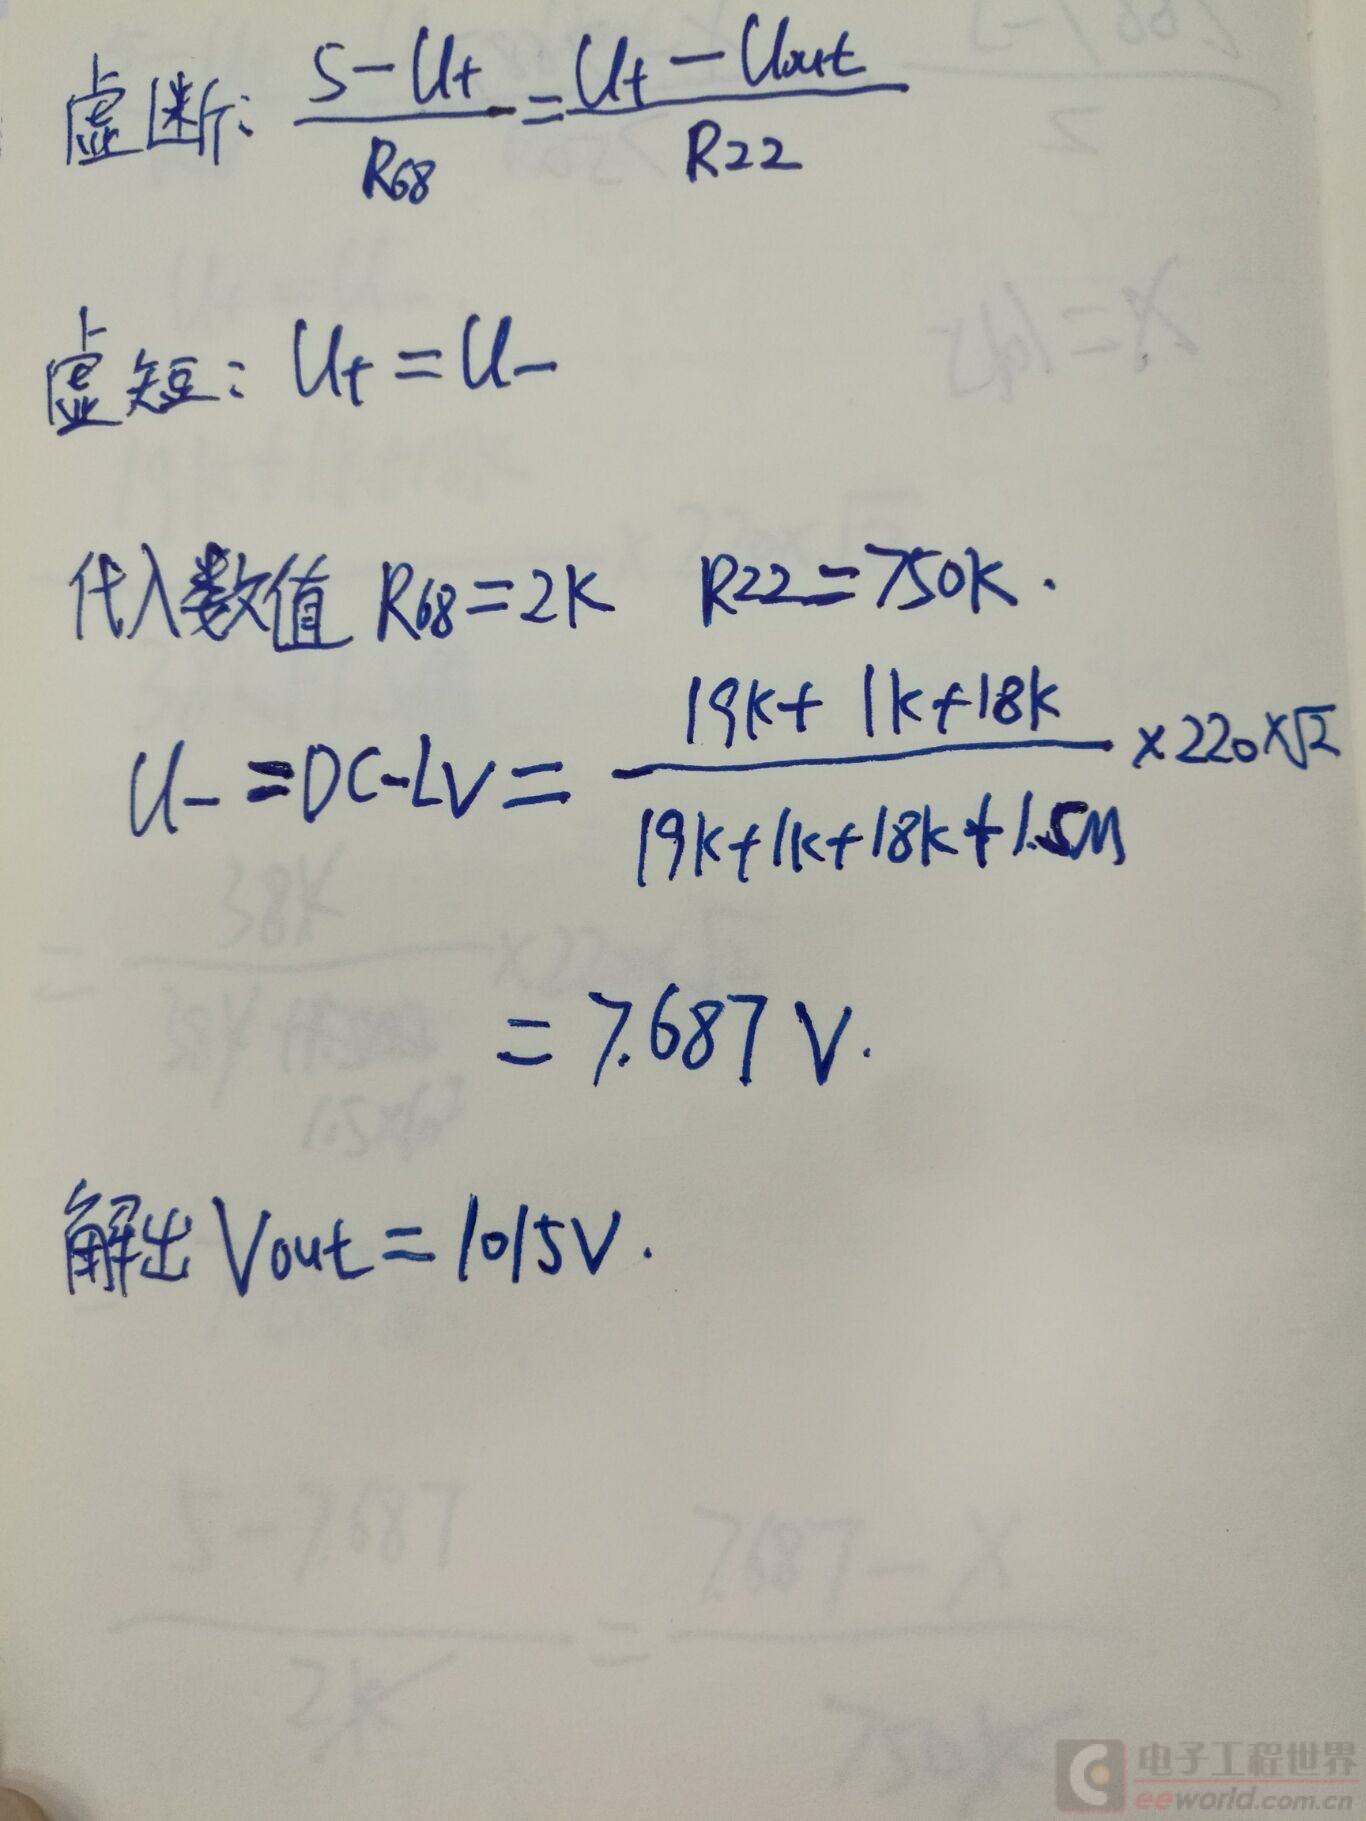 虚断: (5-U+)/R68 = (U+ - Uout)/R22
虚短: U+ = U-
代入数值 R68=2K R22=750K.
U- = DC-LV = (19K+1K+18K)/(19K+1K+18K+1.5M) ×220×√2
= 7.687 V.
解出 Vout = 1015V.
5-7.687 = 7.687-X
2K 750K
电子工程世界
eeworld.com.cn